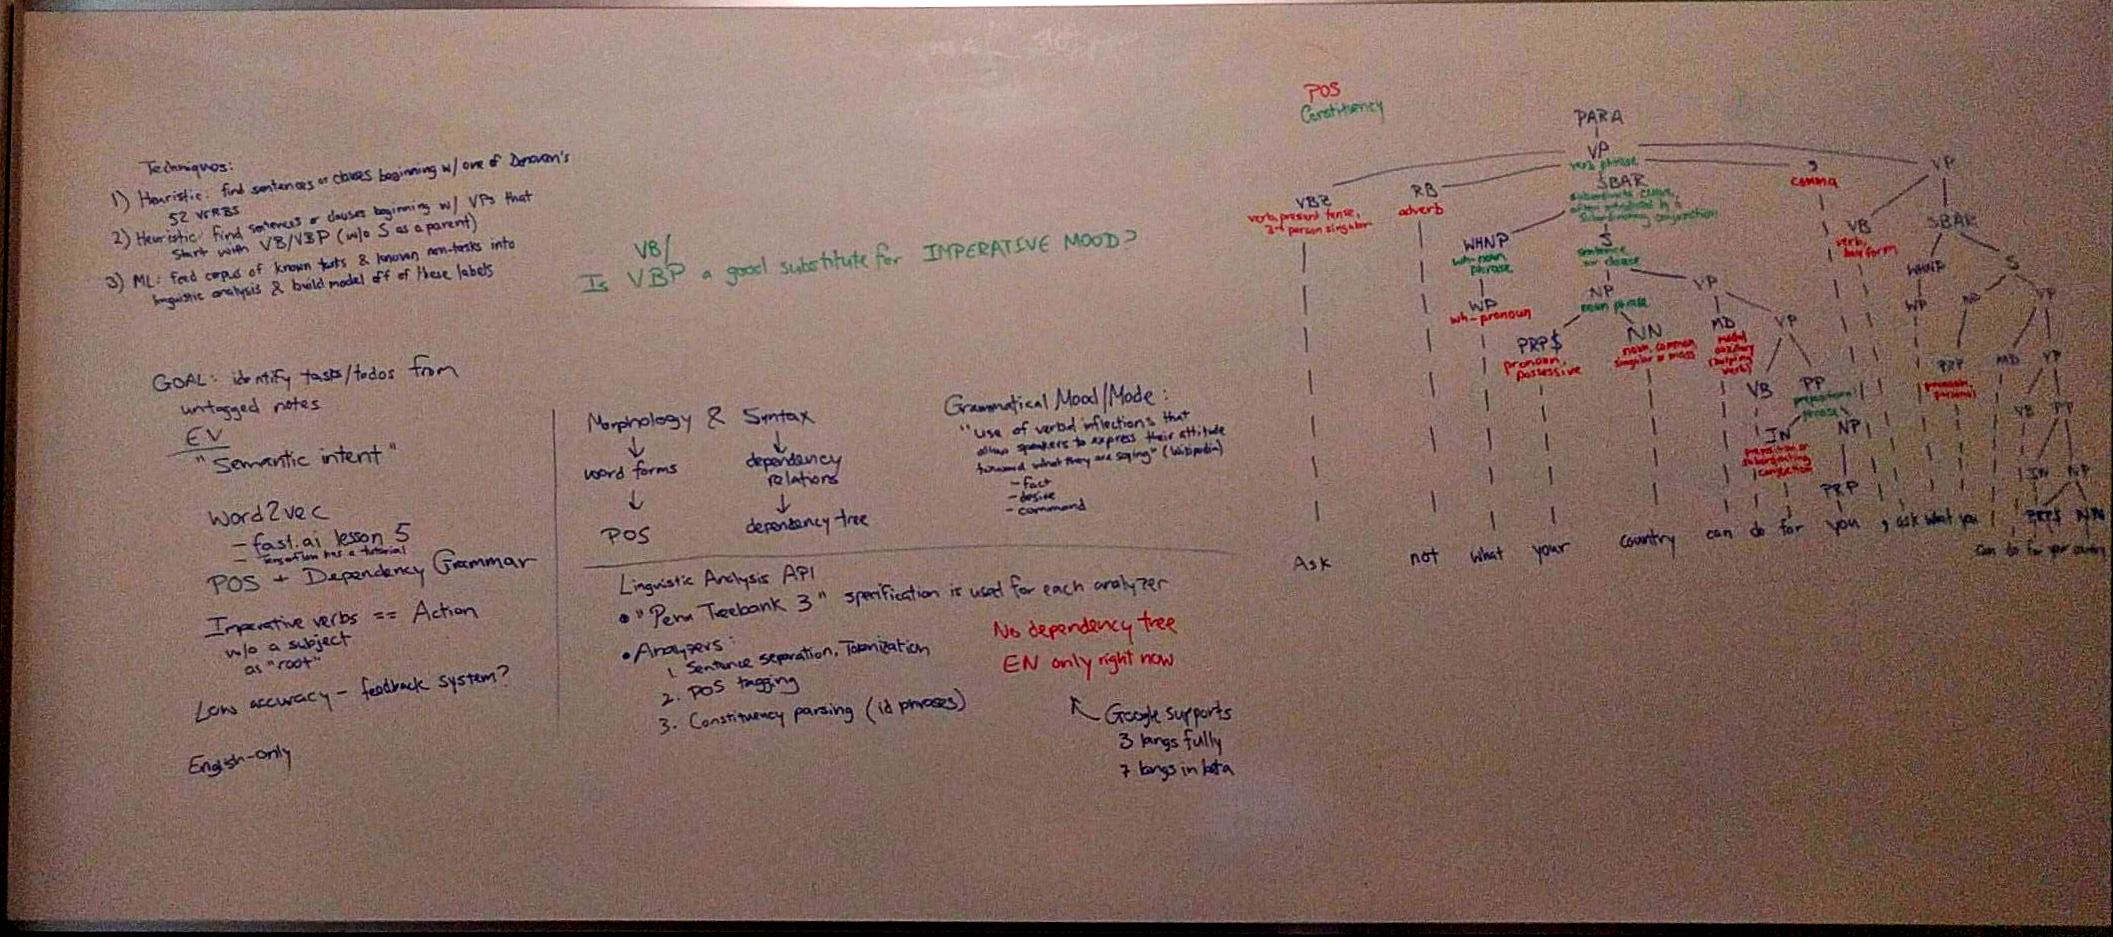 Techniques:
1) Heuristic: find sentences or clauses beginning w/ one of Donovan's
52 VERBS
2) Heuristic: find sentences or clauses beginning w/ VPs that
start with VB/VBP (w/o S as a parent)
3) ML: feed corpus of known tasks & known non-tasks into
linguistic analysis & build model off of these labels
GOAL: identify tasks/todos from
untagged notes
EV
"Semantic intent"
Word2vec
- fast.ai lesson 5
- Tensorflow has a tutorial
POS + Dependency Grammar
Imperative verbs == Action
w/o a subject
as "root"
Low accuracy - feedback system?
English-only
VB/
Is VBP a good substitute for IMPERATIVE MOOD?
Morphology & Syntax
word forms
dependency
relations
POS
dependency tree
Grammatical Mood/Mode:
"use of verbal inflections that
allow speakers to express their attitude
toward what they are saying" (Wikipedia)
- fact
- desire
- command
Linguistic Analysis API
• "Penn Treebank 3" specification is used for each analyzer
• Analyzers:
1. Sentence separation, Tokenization
2. POS tagging
3. Constituency parsing (id phrases)
No dependency tree
EN only right now
Google supports
3 langs fully
7 langs in beta
POS
Constituency
PARA
VP
verb phrase
VBZ
verb, present tense,
3rd person singular
RB
adverb
SBAR
subordinate clause,
often introduced by a
subordinating conjunction
,
comma
VP
WHNP
wh-noun
phrase
S
sentence
or clause
VB
verb,
base form
SBAR
WP
wh-pronoun
NP
noun phrase
VP
WHNP
S
PRP$
pronoun,
possessive
NN
noun, common
singular or mass
MD
modal
auxiliary
(helping
verb)
VP
WP
NP
VP
VB
PP
prepositional
phrase
PRP
pronoun,
personal
MD
VP
IN
preposition or
subordinating
conjunction
NP
VB
PP
PRP
IN
NP
PRP$ NN
Ask not what your country can do for you , ask what you
can do for your country